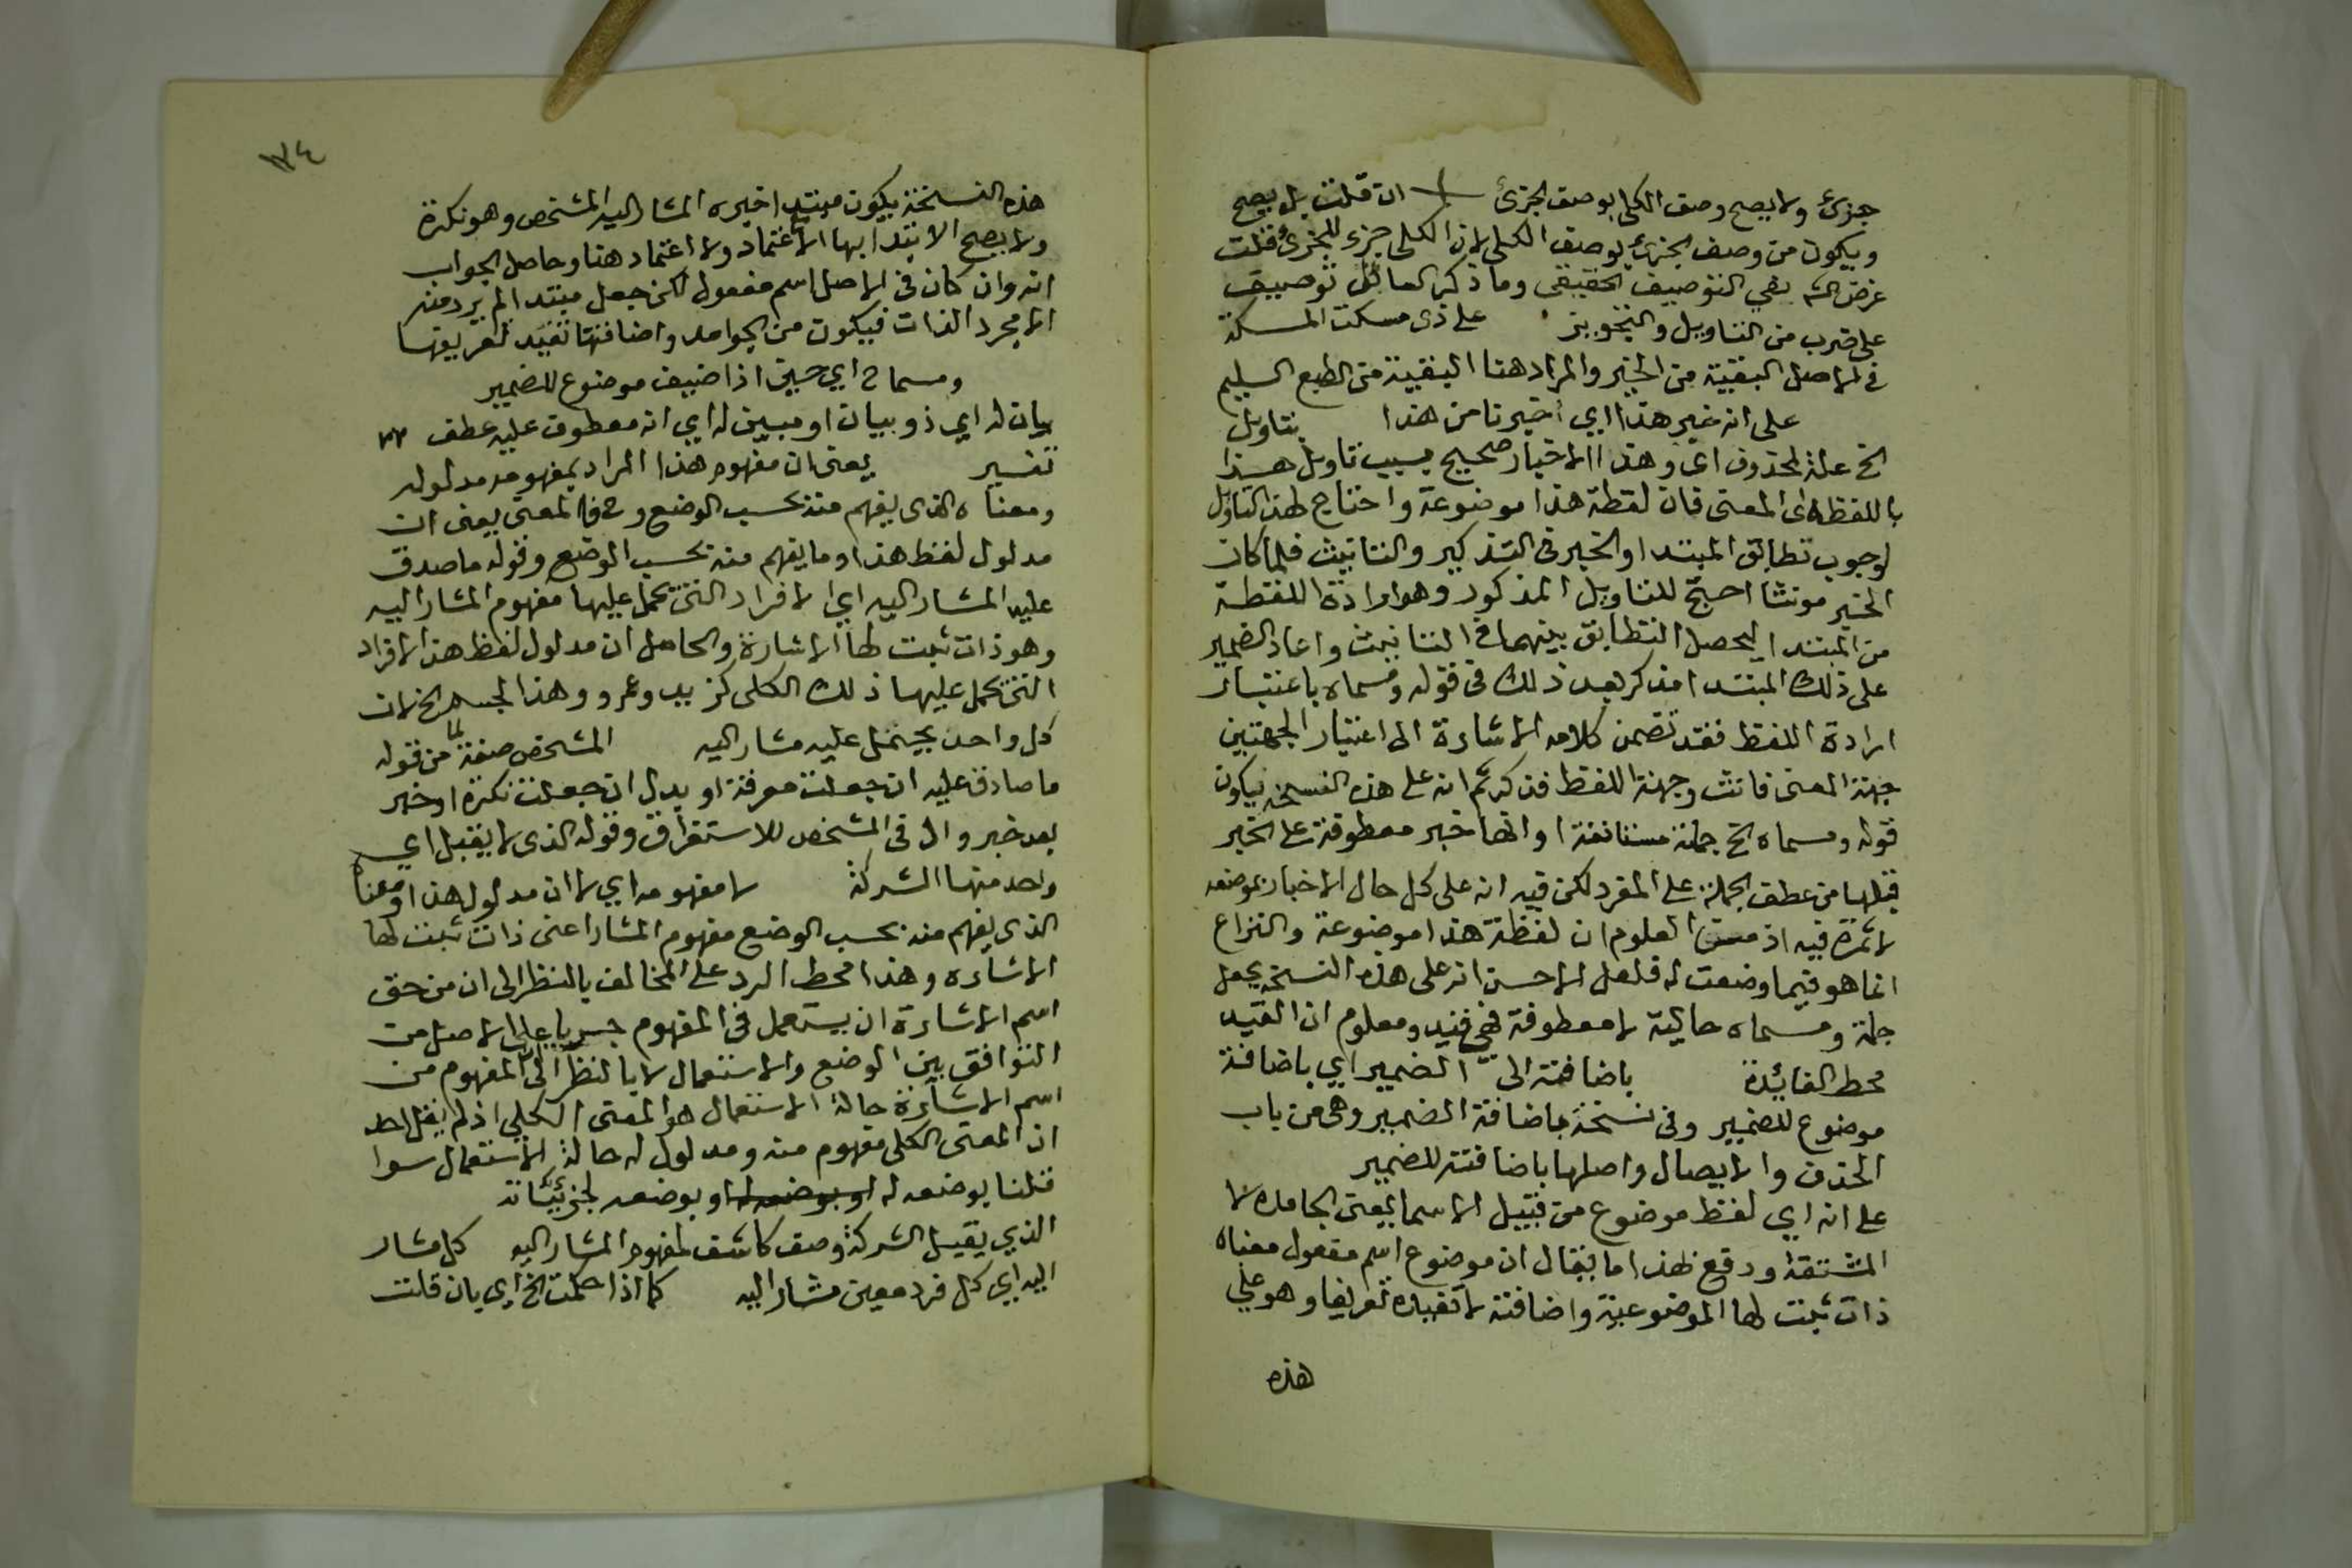 جزئ ولا يصح وصف الكلي بوصف الجزئ ان قلت بل يصح
ويكون من وصف الجزئ بوصف الكلي لان الكلي جزء للجزئ قلت
غرض الشم نفي التوصيف الحقيقي وما ذكر القائل توصيف
على ضرب من التاويل والتجويز على ذى مسكت المسكة
في الاصل البقية من الخير والمراد هنا البقية من الطبع السليم
على انه غير هذا اي اخبرنا من هذا بتاويل
الخ علة لمحذوف اى وهذا الاخبار صحيح بسبب تاويل هذا
باللفظة اى المعنى فان لفظة هذا موضوعة واحتاج لهذا التاويل
لوجوب تطابق المبتدا والخبر في التذكير والتانيث فلما كان
الخبر مونثا احتج للتاويل المذكور وهو ارادة اللفظة
من المبتدا ليحصل التطابق بينهما في التانيث واعاد الضمير
على ذلك المبتدا مذكر بعد ذلك في قوله ومسماه باعتبار
ارادة اللفظ فقد تضمن كلامه الاشارة الى اعتبار الجهتين
جهة المعنى فانث وجهة اللفظ فذكر ثم انه على هذه النسخة يكون
قوله ومسماه الخ جملة مستانفة او انها خبر معطوفة على الخبر
قبلها من عطف الجملة على المفرد لكن فيه انه على كل حال الاخبار بموضعه
لا ثمرة فيه اذ من المعلوم ان لفظة هذا موضوعة والنزاع
انما هو فيما وضعت له فلعل الاحسن انه على هذه النسخة يجعل
جملة ومسماه حالية لا معطوفة فهي قيد ومعلوم ان القيد
محط الفائدة باضافته الى الضمير اي باضافة
موضوع للضمير وفى نسخة باضافة الضمير وهى من باب
الحذف والايصال واصلها باضافته للضمير
على انه اي لفظ موضوع من قبيل الاسما بمعنى الجامدة لا
المشتقة ودفع بهذا ما يقال ان موضوع اسم مفعول معناه
ذات ثبتت لها الموضوعية واضافته لا تفيده تعريفا وهو على
هذه
١٣٤
هذه النسخة يكون مبتدا خبره المشار اليه المشخص وهو نكرة
ولا يصح الابتدا بها الا باعتماد ولا اعتماد هنا وحاصل الجواب
انه وان كان في الاصل اسم مفعول لكن جعل مبتدا لم يرد منه
الا مجرد الذات فيكون من الجوامد واضافتها تفيد تعريفها
ومسماه اي حين اذا ضيف موضوع للضمير
بيان له اي ذو بيان او مبين له اي انه معطوف عليه عطف
تفسير يعنى ان مفهوم هذا المراد بمفهومه مدلوله
ومعناه الذى يفهم منه بحسب الوضع وح فالمعنى يعنى ان
مدلول لفظ هذا وما يفهم منه بحسب الوضع وقوله ما صدق
عليه المشار اليه اي الافراد التى يحمل عليها مفهوم المشار اليه
وهو ذات ثبت لها الاشارة والحاصل ان مدلول لفظ هذا الافراد
التى يحمل عليها ذلك الكلى كزيد وعمرو وهذا الجسم الخ لان
كل واحد يحتمل عليه مشار اليه المشخص صفة لما من قوله
ما صادق عليه ان جعلت معرفة او بدل ان جعلت نكرة او خبر
بعد خبر وال فى المشخص للاستغراق وقوله الذى لا يقبل اي
واحد منها الشركة لا مفهومه اي لا ان مدلول هذا ومعناه
الذى يفهم منه بحسب الوضع مفهوم المشار اعنى ذات ثبت لها
الاشاره وهذا محط الرد على المخالف بالنظر الى ان من حق
اسم الاشارة ان يستعمل في المفهوم جريا على الاصل من
التوافق بين الوضع والاستعمال لا بالنظر الى ان المفهوم من
اسم الاشارة حالة الاستعمال هو المعنى الكلى اذ لم يقل احد
ان المعنى الكلى مفهوم منه ومدلول له حالة الاستعمال سوا
قلنا بوضعه له او بوضعه لجزئياته
الذي يقبل الشركة وصف كاشف لمفهوم المشار اليه كل مشار
اليه اي كل فرد معين مشار اليه كما اذا حكمت الخ اي بان قلت